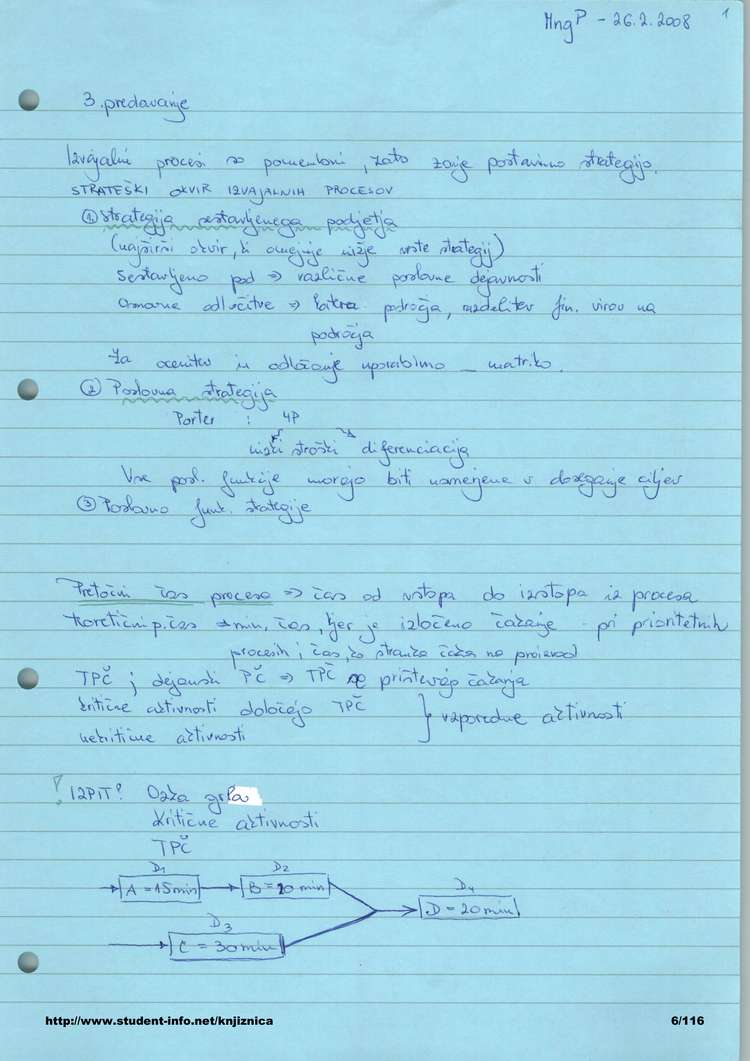 MngP - 26.2.2008
1
3. predavanje
Izvajalni procesi so pomembni, zato zanje postavimo strategijo.
STRATEŠKI OKVIR IZVAJALNIH PROCESOV
① Strategija sestavljenega podjetja
(najširši okvir, ki omejuje nižje vrste strategij)
Sestavljeno pod => različne poslovne dejavnosti
Osnovne odločitve => katera področja, razdelitev fin. virov na
področja
Za ocenitev in odločanje uporabimo _ matriko.
② Poslovna strategija
Porter : 4P
nizki stroški diferenciacija
Vse posl. funkcije morajo biti usmerjene v doseganje ciljev
③ Poslovno funk. strategije
Pretočni čas procesa => čas od vstopa do izstopa iz procesa
Teoretični p. čas = min. čas, kjer je izločeno čakanje - pri prioritetnih
procesih; čas, ko stranka čaka na proizvod
TPČ ; dejanski PČ => TPČ se prištevajo čakanja
kritične aktivnosti določajo TPČ
nekritične aktivnosti } vzporedne aktivnosti
! IZPIT? Ozka grla
Kritične aktivnosti
TPČ
D1 D2
A = 15 min B = 20 min D4
D = 20 min
D3
C = 30 min
http://www.student-info.net/knjiznica 6/116